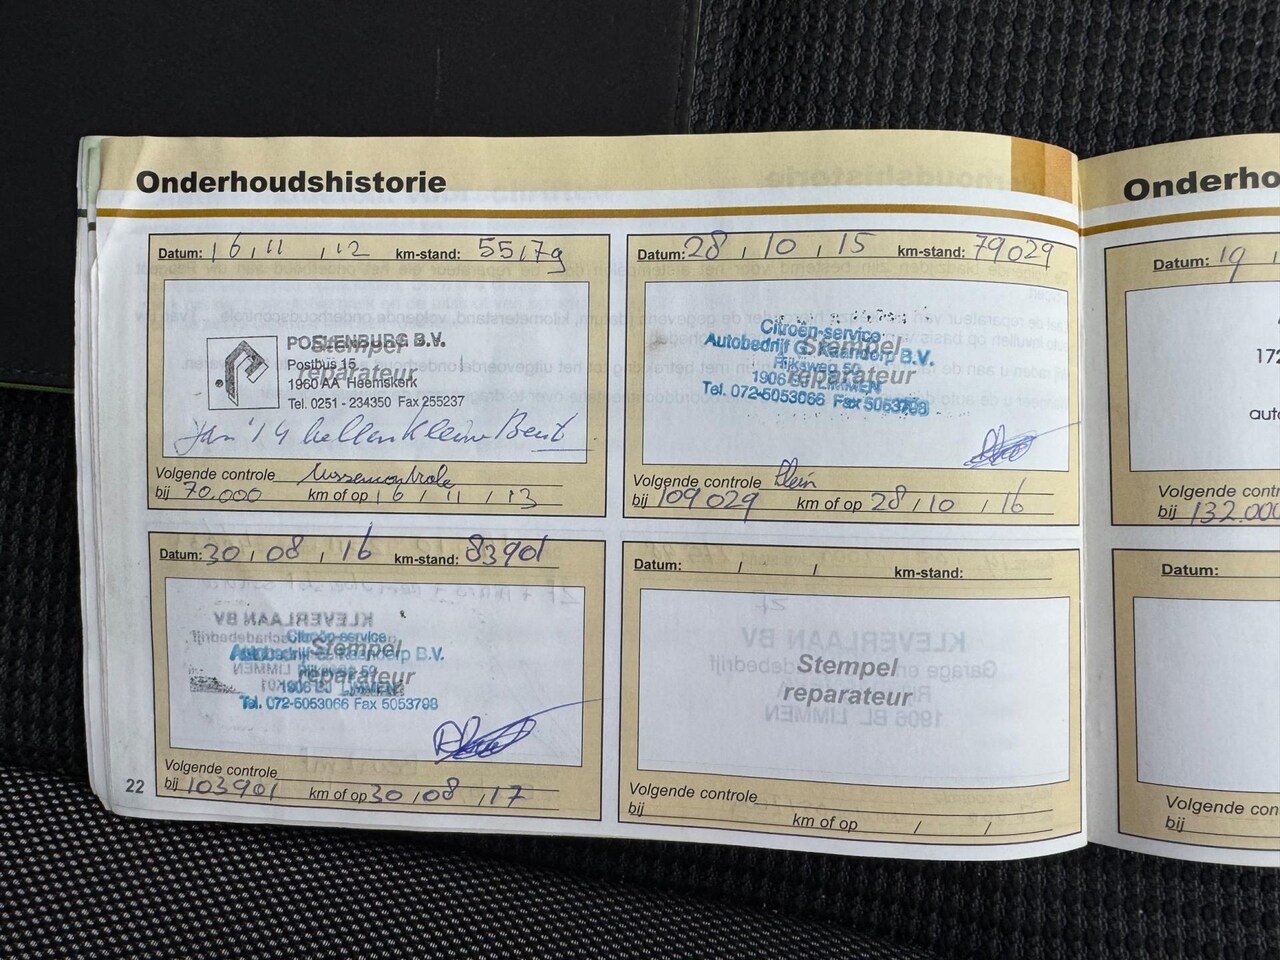 Onderhoudshistorie
Datum: 16, 11, 12 km-stand: 55179
POSTENBURG B.V.
Stempel
Postbus 15
reparateur
1960 AA Heemskerk
Tel. 0251 - 234350 Fax 255237
Jan '14 bellen Kleine Beurt
Volgende controle Tussencontrole
bij 70.000 km of op 16 / 11 / 13
Datum: 28, 10, 15 km-stand: 79029
Citroën-service
Autobedrijf G. Kaandorp B.V.
Stempel
Rijksweg 50
reparateur
1906 LIMMEN
Tel. 072-5053066 Fax 5053798
Volgende controle Klein
bij 109029 km of op 28 / 10 / 16
Datum: 30, 08, 16 km-stand: 83901
Citroën-service
Stempel
Autobedrijf G. Kaandorp B.V.
Rijksweg 50
reparateur
1906 LIMMEN
Tel. 072-5053066 Fax 5053798
Volgende controle
bij 103901 km of op 30 / 08 / 17
22
Datum: / / km-stand:
Stempel
reparateur
Volgende controle
bij km of op / /
Onderho
Datum: 19
172
auto
Volgende contr
bij 132.000
Datum:
Volgende con
bij